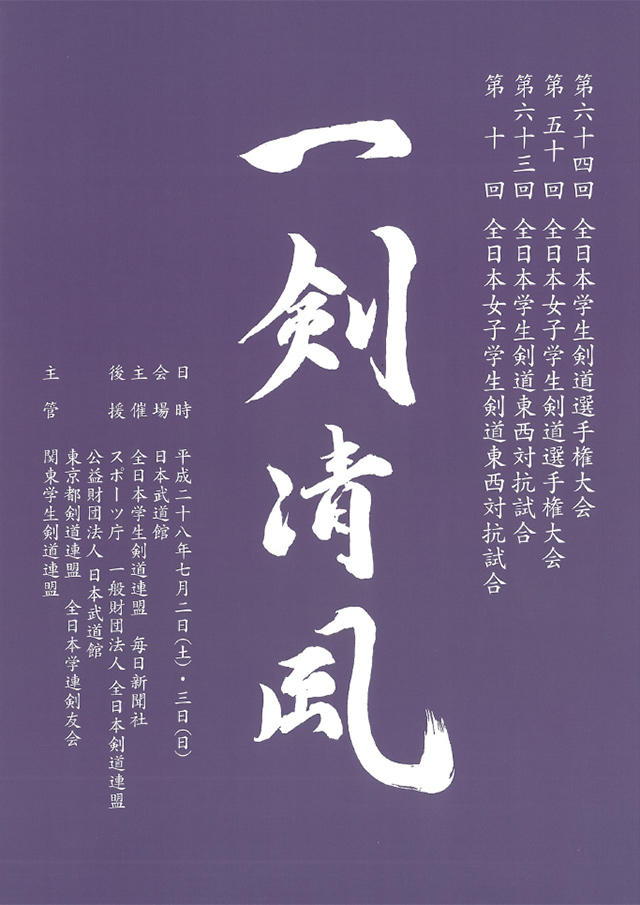 第六十四回 全日本学生剣道選手権大会
第五十回 全日本女子学生剣道選手権大会
第六十三回 全日本学生剣道東西対抗試合
第十回 全日本女子学生剣道東西対抗試合
一剣清風
日時 平成二十八年七月二日(土)・三日(日)
会場 日本武道館
主催 全日本学生剣道連盟 毎日新聞社
後援 スポーツ庁 一般財団法人 全日本剣道連盟
公益財団法人 日本武道館
東京都剣道連盟 全日本学連剣友会
主管 関東学生剣道連盟